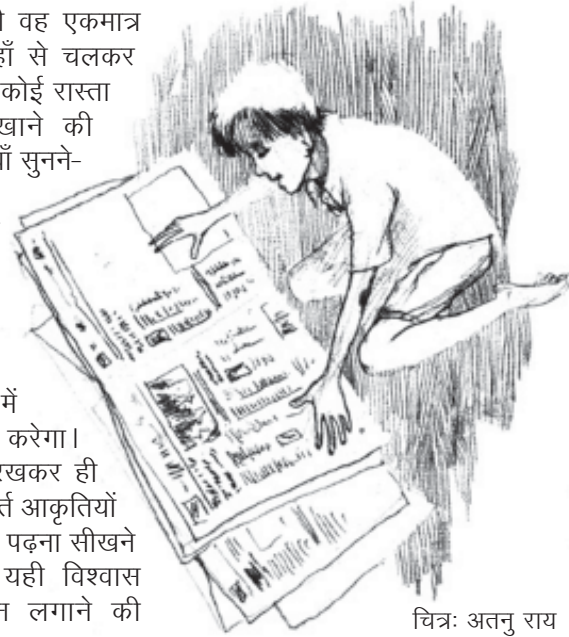 वह एकमात्र
हाँ से चलकर
कोई रास्ता
खाने की
याँ सुनने-
में
करेगा।
रखकर ही
र्त आकृतियों
पढ़ना सीखने
यही विश्वास
लगाने की
चित्रः अतनु राय